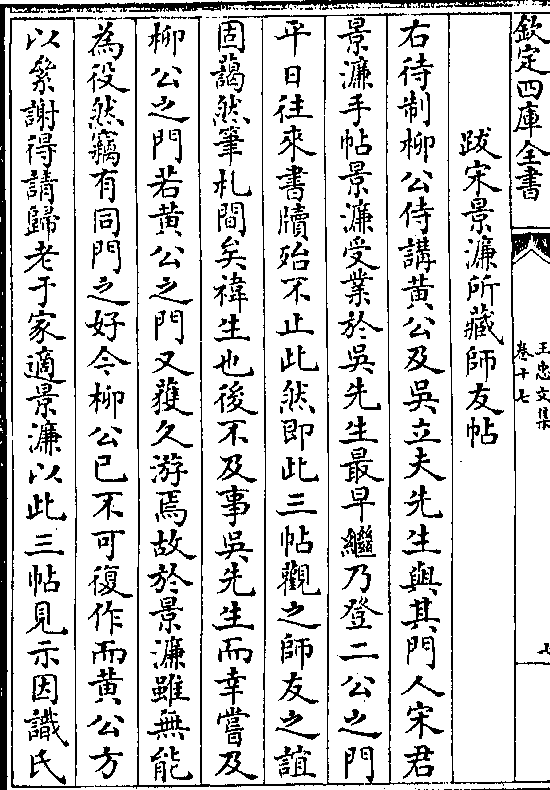 欽定四庫全書
王忠文集
卷十七
七
跋宋景濂所藏師友帖
右待制柳公侍講黃公及吳立夫先生與其門人宋君
景濂手帖景濂受業於吳先生最早繼乃登二公之門
平日往來書牘殆不止此然即此三帖觀之師友之誼
固藹然筆札間矣禕生也後不及事吳先生而幸嘗及
柳公之門若黃公之門又獲久游焉故於景濂雖無能
為役然竊有同門之好今柳公已不可復作而黃公方
以累謝得請歸老于家適景濂以此三帖見示因識氏